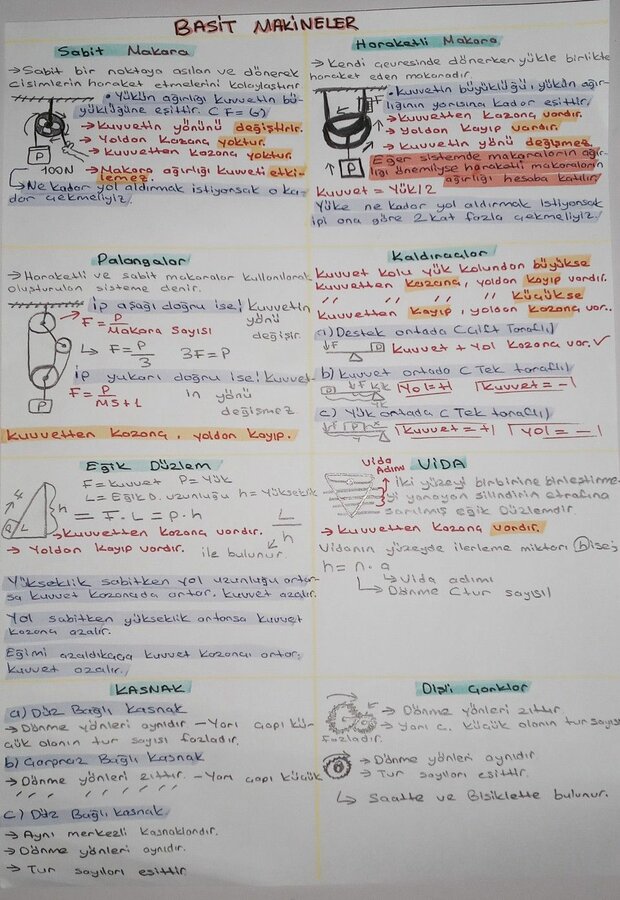 BASİT MAKİNELER
Sabit Makara
→ Sabit bir noktaya asılan ve dönerek
cisimlerin hareket etmelerini kolaylaştırır.
• Yükün ağırlığı kuvvetin bü-
yüklüğüne eşittir. ( F= G)
→ Kuvvetin yönünü değiştirir.
→ Yoldan Kazanç yoktur.
→ Kuvvetten Kazanç yoktur.
P
100N → Makara ağırlığı kuvveti etki-
lemez.
→ Ne kadar yol aldırmak istiyorsak o ka-
dar çekmeliyiz.
Hareketli Makara
→ Kendi çevresinde dönerken yükle birlikte
hareket eden makaradır.
• Kuvvetin büyüklüğü, yükün ağır-
lığının yarısına kadar eşittir.
→ Kuvvetten Kazanç vardır.
→ Yoldan Kayıp vardır.
→ Kuvvetin yönü değişmez
P
Eğer sistemde makaraların ağır-
lığı önemliyse hareketli makaranın
ağırlığı hesaba katılır.
Kuvvet = Yük/2
Yüke ne kadar yol aldırmak istiyorsak
ipi ona göre 2 kat fazla çekmeliyiz.
Palangalar
→ Hareketli ve sabit makaralar kullanılarak
oluşturulan sisteme denir.
İp aşağı doğru ise! Kuvvetin
yönü
değişir.
F = P / Makara Sayısı
↳ F = P / 3 3F = P
İp yukarı doğru ise! Kuvvet-
in yönü
değişmez
F = P / MS+1
P
Kuvvetten Kazanç, yoldan kayıp.
Kaldıraçlar
Kuvvet kolu yük kolundan büyükse
Kuvvetten Kazanç, yoldan kayıp vardır.
" " " " küçükse
Kuvvetten Kayıp, yoldan Kazanç var.
a) Destek ortada (Çift Taraflı)
F P Kuvvet + Yol Kazanç var. ✓
b) Kuvvet ortada ( Tek taraflı)
Yol = + Kuvvet = -
c) Yük ortada ( Tek taraflı)
Kuvvet = + Yol = -
Eğik Düzlem
F = Kuvvet P = Yük
L = Eğik D. uzunluğu h = Yükseklik
h
= F.L = P.h
L / h
→ Kuvvetten Kazanç vardır.
→ Yoldan Kayıp vardır. ile bulunur.
Yükseklik sabitken yol uzunluğu artar-
sa kuvvet kazancıda artar. kuvvet azalır.
Yol sabitken yükseklik artarsa kuvvet
kazancı azalır.
Eğimi azaldıkça kuvvet Kazancı artar,
kuvvet azalır.
VİDA
Vida
Adımı
→ İki yüzeyi birbirine birleştirme-
yi yarayan silindirin etrafına
sarılmış eğik Düzlemdir.
→ Kuvvetten Kazanç vardır.
Vidanın yüzeyde ilerleme miktarı h ise;
h = n . a
→ Vida adımı
→ Dönme (tur sayısı)
KASNAK
a) Düz Bağlı Kasnak
→ Dönme yönleri aynıdır – Yarı çapı kü-
çük olanın tur sayısı fazladır.
b) Çapraz Bağlı Kasnak
→ Dönme yönleri zıttır. – Yarı çapı küçük
" " " " " " "
c) Düz Bağlı kasnak
→ Aynı merkezli Kasnaklardır.
→ Dönme yönleri aynıdır.
→ Tur sayıları eşittir
Dişli Çarklar
→ Dönme yönleri zıttır.
→ Yarı ç. küçük olanın tur sayısı
Fazladır.
→ Dönme yönleri aynıdır
→ Tur sayıları eşittir.
↳ Saatte ve Bisiklette bulunur.